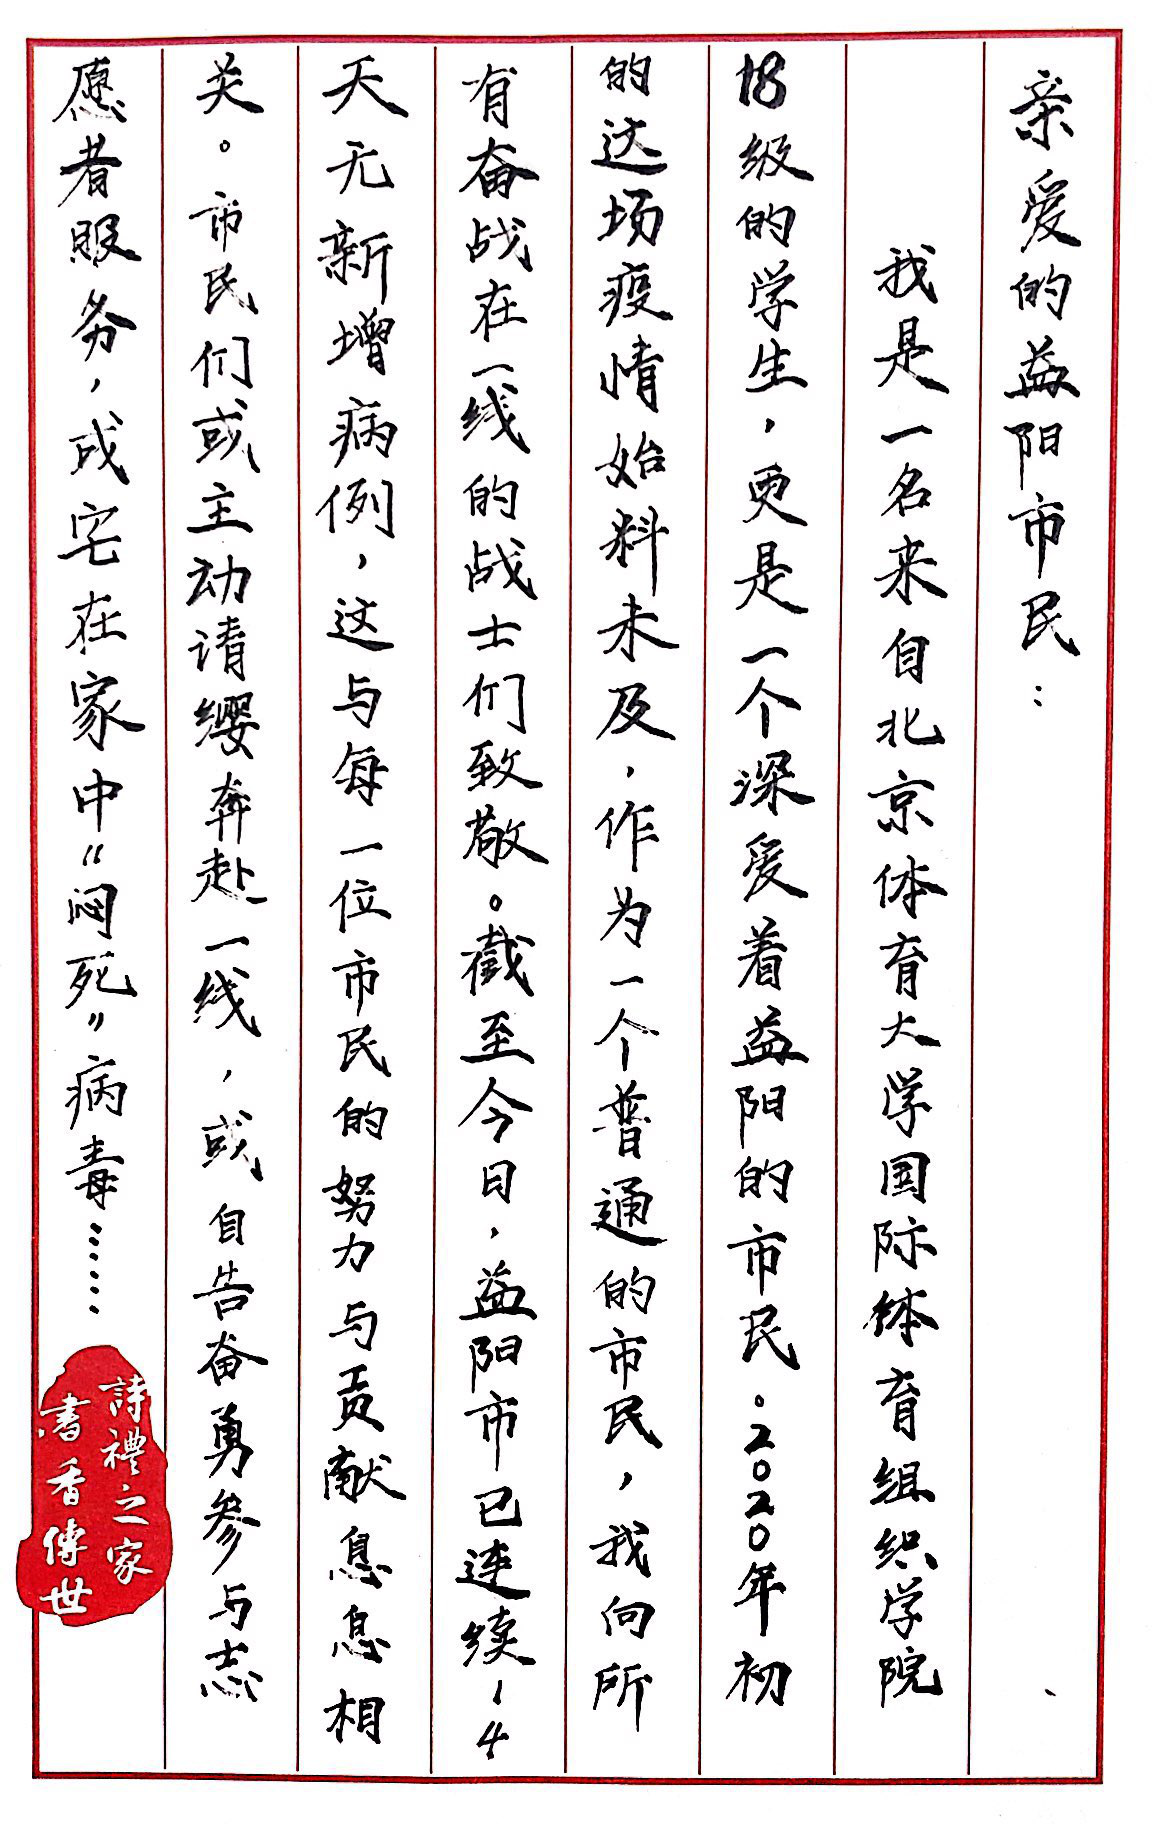 亲爱的益阳市民：
我是一名来自北京体育大学国际体育组织学院
18级的学生，更是一个深爱着益阳的市民。2020年初
的这场疫情始料未及，作为一个普通的市民，我向所
有奋战在一线的战士们致敬。截至今日，益阳市已连续14
天无新增病例，这与每一位市民的努力与贡献息息相
关。市民们或主动请缨奔赴一线，或自告奋勇参与志
愿者服务，或宅在家中“闷死”病毒……
詩禮之家
書香傳世